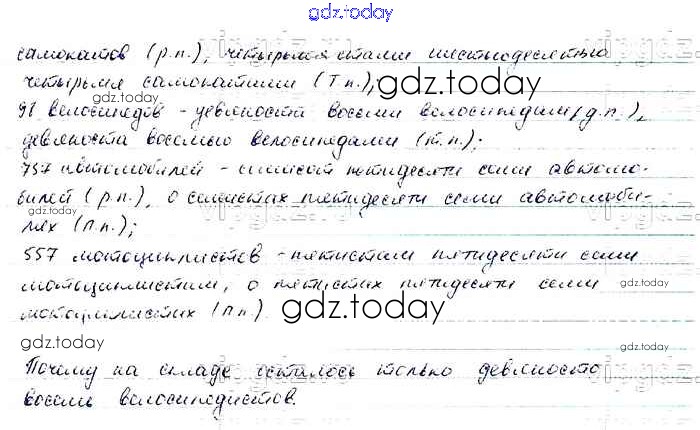 gdz.today
самокатов (р.п.), четырьмя стами шестьюдесятью
четырьмя самокатами (Т.п.);
gdz.today
98 велосипедов - девяноста восьми велосипедам (д.п.),
девяноста восемью велосипедами (т.п.);
757 автомобилей - семисот пятидесяти семи автомо-
билей (р.п.), о семистах пятидесяти семи автомоби-
лях (п.п.);
557 мотоциклистов - пятистам пятидесяти семи
мотоциклистам, о пятистах пятидесяти семи
мотоциклистах (п.п.).
gdz.today
Почему на складе осталось только девяносто
восемь велосипедистов.